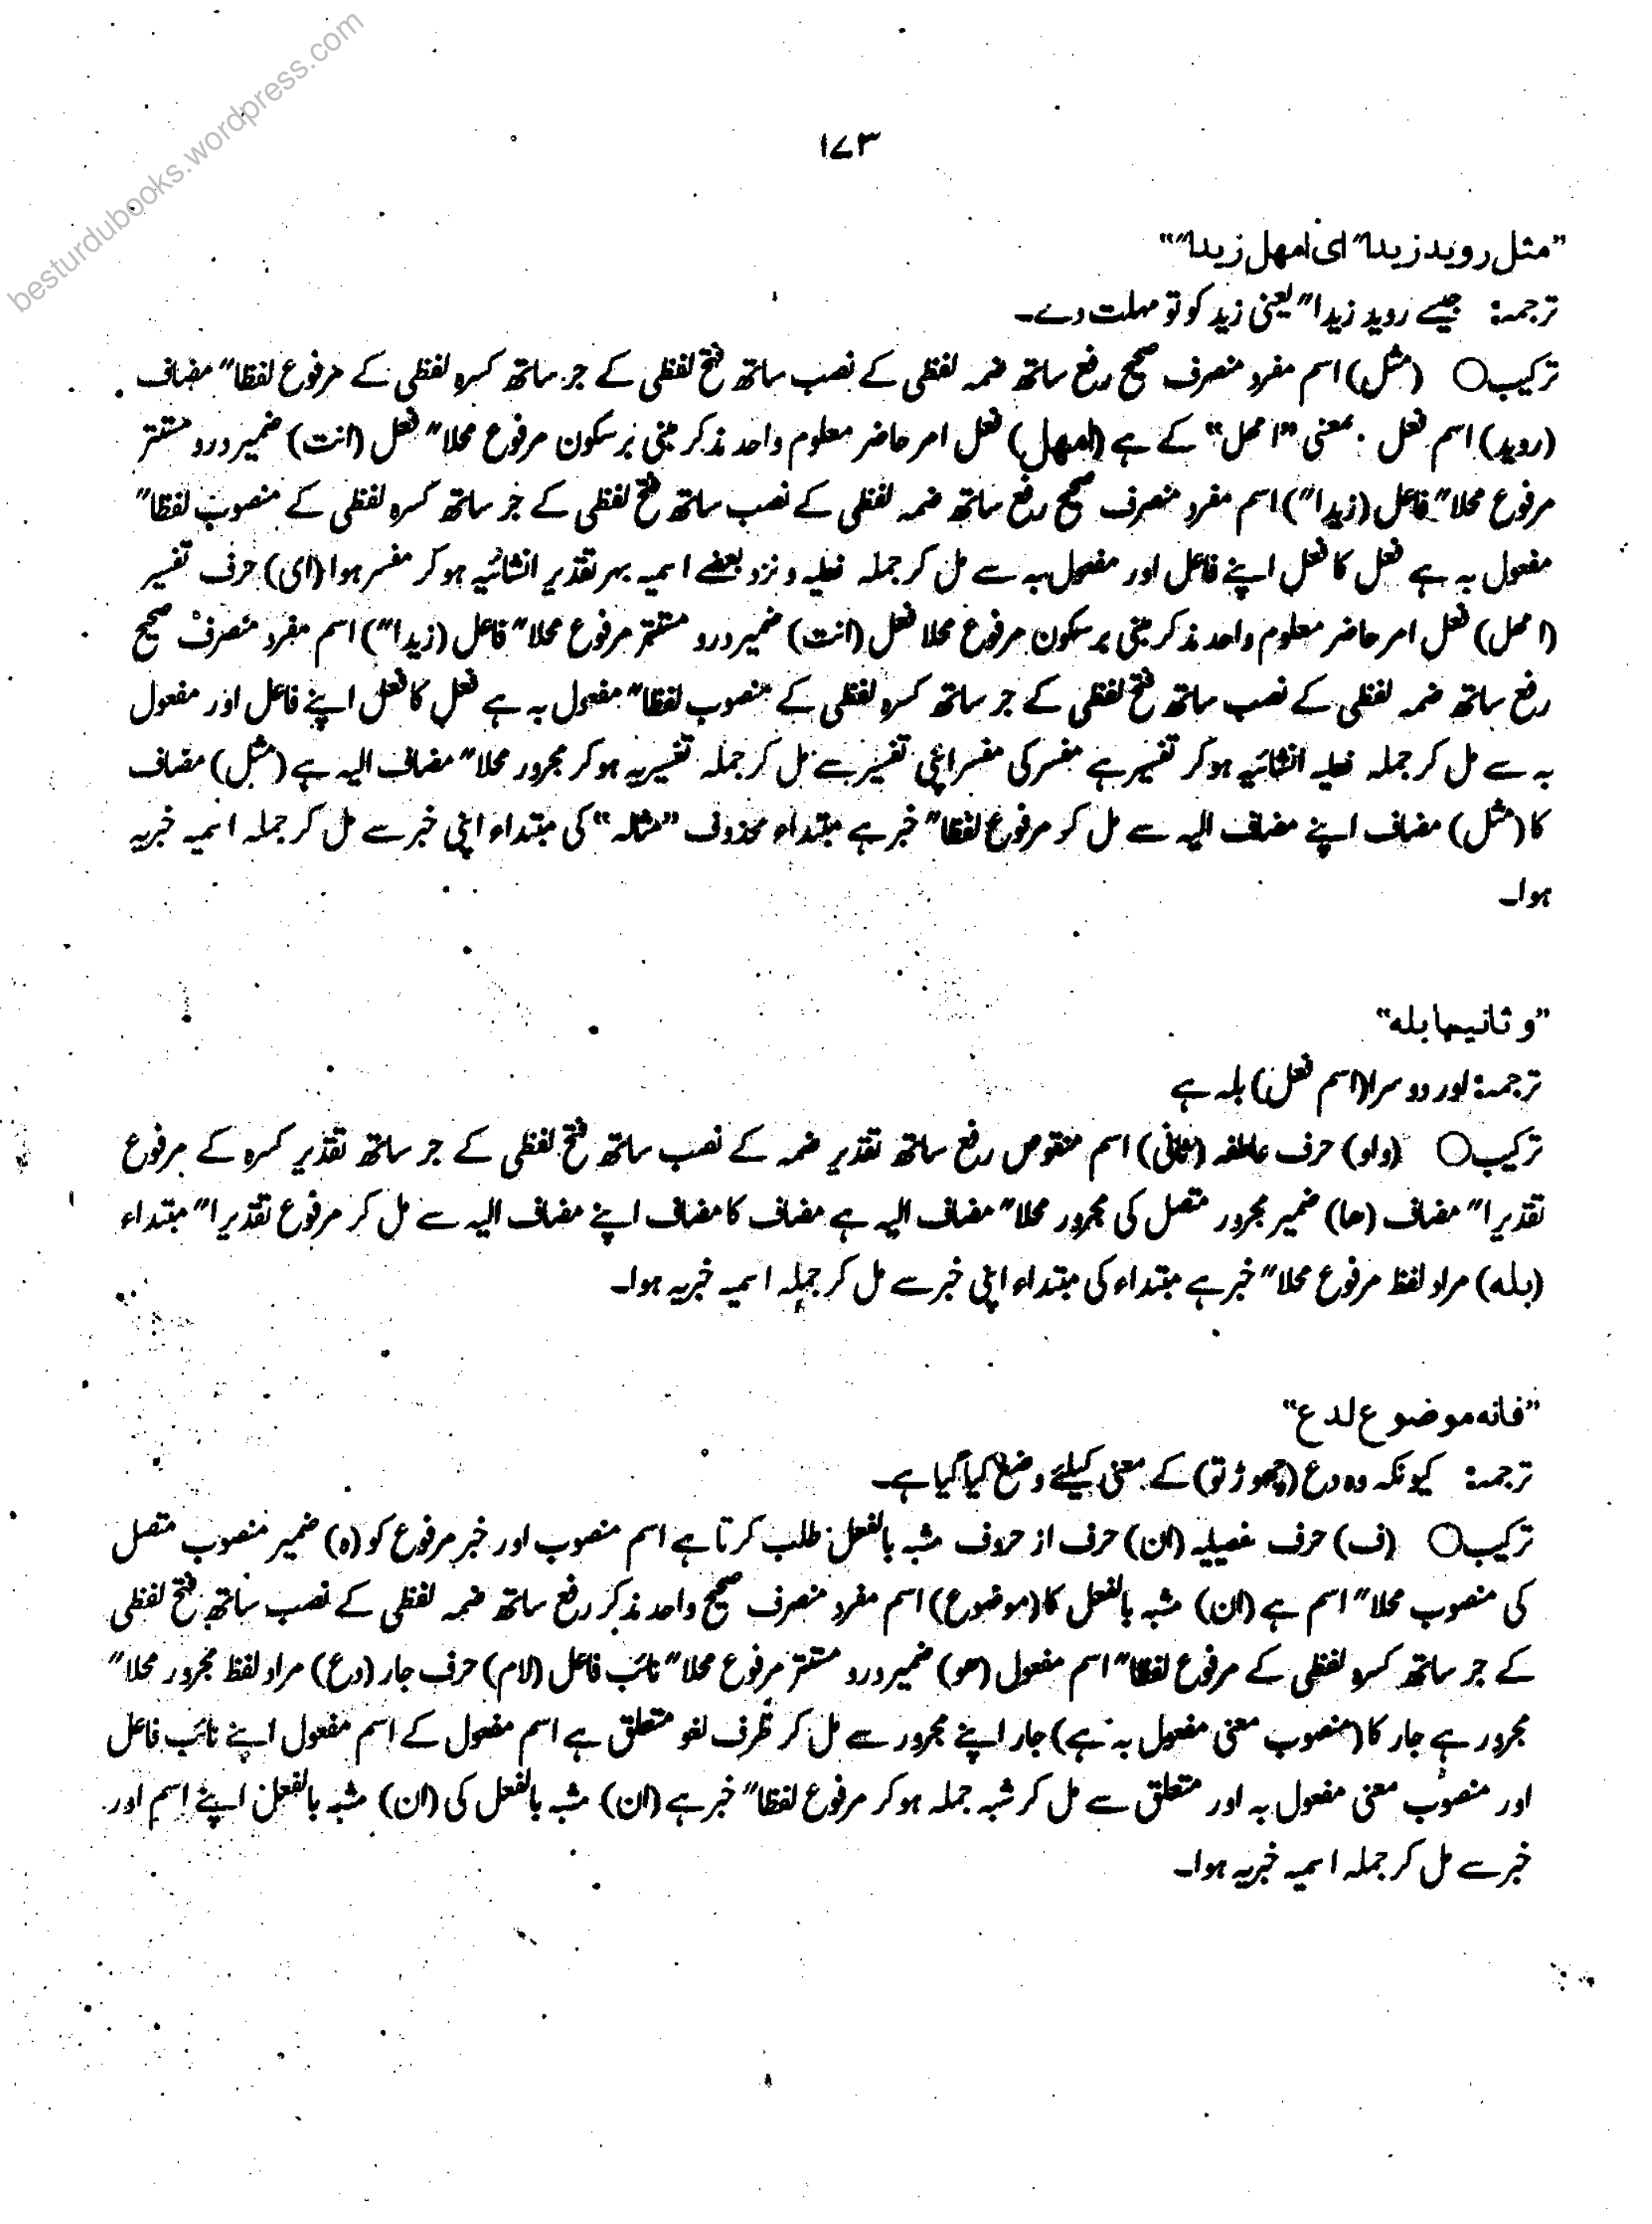 besturdubooks.wordpress.com
۱۷۳
”مثل رويد زيدا" ای امهل زيدا"“
ترجمہ: جیسے روید زیدا" یعنی زید کو تو مہلت دے۔
ترکیب○ (مثل) اسم مفرد منصرف صحیح رفع ساتھ ضمہ لفظی کے نصب ساتھ فتح لفظی کے جر ساتھ کسرہ لفظی کے مرفوع لفظا" مضاف
(روید) اسم فعل . معنی ”امھل“ کے ہے (امهل) فعل امر حاضر معلوم واحد مذکر مبنی بر سکون مرفوع محلا" فعل (انت) ضمیر درو مستتر
مرفوع محلا" فاعل (زیدا") اسم مفرد منصرف صحیح رفع ساتھ ضمہ لفظی کے نصب ساتھ فتح لفظی کے جر ساتھ کسرہ لفظی کے منصوب لفظا"
مفعول بہ ہے فعل کا فعل اپنے فاعل اور مفعول بہ سے مل کر جملہ فعلیہ و نزد بعضے اسمیہ بہر تقدیر انشائیہ ہو کر مفسر ہوا (ای) حرف تفسیر
(امھل) فعل امر حاضر معلوم واحد مذکر مبنی بر سکون مرفوع محلا فعل (انت) ضمیر درو مستتر مرفوع محلا" فاعل (زیدا") اسم مفرد منصرف صحیح
رفع ساتھ ضمہ لفظی کے نصب ساتھ فتح لفظی کے جر ساتھ کسرہ لفظی کے منصوب لفظا" مفعول بہ ہے فعل کا فعل اپنے فاعل اور مفعول
بہ سے مل کر جملہ فعلیہ انشائیہ ہو کر تفسیر ہے مفسر کی مفسر اپنی تفسیر سے مل کر جملہ تفسیریہ ہو کر مجرور محلا" مضاف الیہ ہے (مثل) مضاف
کا (مثل) مضاف اپنے مضاف الیہ سے مل کر مرفوع لفظا" خبر ہے مبتداء محذوف ”مثالہ“ کی مبتداء اپنی خبر سے مل کر جملہ اسمیہ خبریہ
ہوا۔
”و ثانيها بله“
ترجمہ: اور دوسرا (اسم فعل) بلہ ہے
ترکیب○ (واو) حرف عاطفہ (ثانی) اسم منقوص رفع ساتھ تقدیر ضمہ کے نصب ساتھ فتح لفظی کے جر ساتھ تقدیر کسرہ کے مرفوع
تقدیرا" مضاف (ھا) ضمیر مجرور متصل کی مجرور محلا" مضاف الیہ ہے مضاف کا مضاف اپنے مضاف الیہ سے مل کر مرفوع تقدیرا" مبتداء
(بله) مراد لفظ مرفوع محلا" خبر ہے مبتداء کی مبتداء اپنی خبر سے مل کر جملہ اسمیہ خبریہ ہوا۔
”فانه موضوع لدع“
ترجمہ: کیونکہ وہ دع (چھوڑ تو) کے معنی کیلئے وضع کیا گیا ہے۔
ترکیب○ (ف) حرف فصیلیہ (ان) حرف از حروف مشبہ بالفعل طلب کرتا ہے اسم منصوب اور خبر مرفوع کو (ہ) ضمیر منصوب متصل
کی منصوب محلا" اسم ہے (ان) مشبہ بالفعل کا (موضوع) اسم مفرد منصرف صحیح واحد مذکر رفع ساتھ ضمہ لفظی کے نصب ساتھ فتح لفظی
کے جر ساتھ کسرہ لفظی کے مرفوع لفظا" اسم مفعول (ھو) ضمیر درو مستتر مرفوع محلا" نائب فاعل (لام) حرف جار (دع) مراد لفظ مجرور محلا"
مجرور ہے جار کا (منصوب معنی مفعول بہ ہے) جار اپنے مجرور سے مل کر ظرف لغو متعلق ہے اسم مفعول کے اسم مفعول اپنے نائب فاعل
اور منصوب معنی مفعول بہ اور متعلق سے مل کر شبہ جملہ ہو کر مرفوع لفظا" خبر ہے (ان) مشبہ بالفعل کی (ان) مشبہ بالفعل اپنے اسم اور
خبر سے مل کر جملہ اسمیہ خبریہ ہوا۔